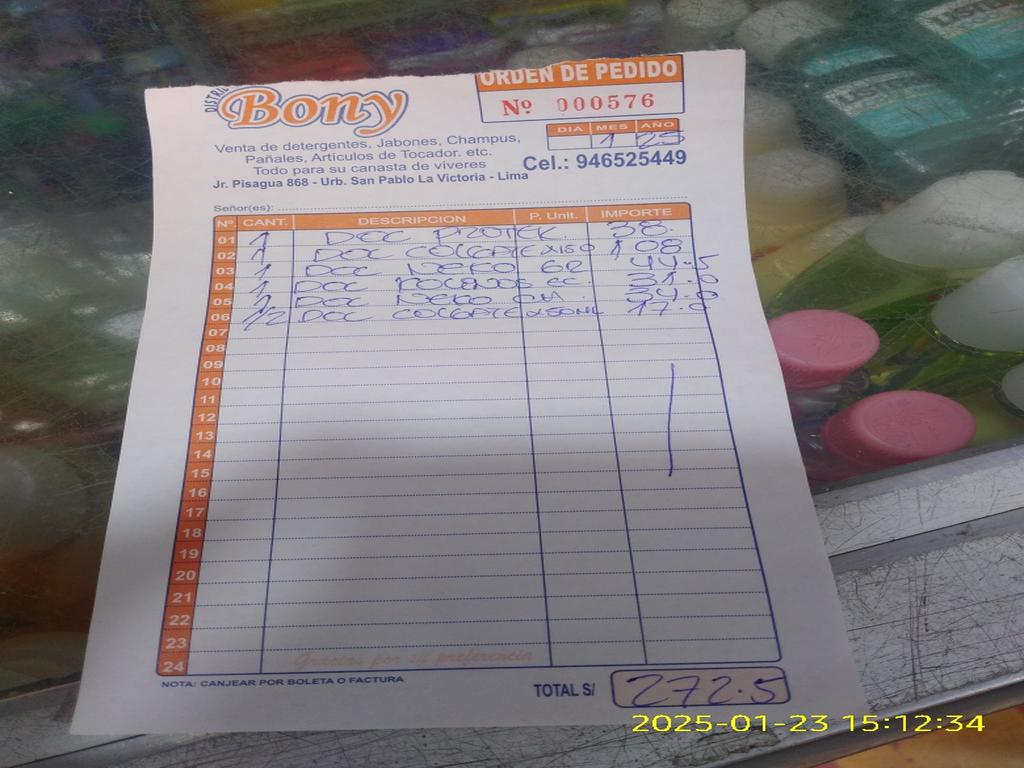 ORDEN DE PEDIDO
Nº 000576
DISTRI Bony
DIA MES AÑO
1 25
Venta de detergentes, Jabones, Champus,
Pañales, Artículos de Tocador. etc.
Todo para su canasta de víveres
Cel.: 946525449
Jr. Pisagua 868 - Urb. San Pablo La Victoria - Lima
Señor(es):
Nº CANT. DESCRIPCION P. Unit. IMPORTE
01 1 DOC PROTEK. 38.
02 1 DOC COLGATE X150 108
03 1 DOC NEKO 62 44.5
04 1 DOC CC. 31.0
05 1 DOC NEKO 34.0
06 1/2 DOC COLGATE X50ML 17.0
07
08
09
10
11
12
13
14
15
16
17
18
19
20
21
22
23
24
Gracias por su preferencia
NOTA: CANJEAR POR BOLETA O FACTURA
TOTAL S/ 272.5
2025-01-23 15:12:34